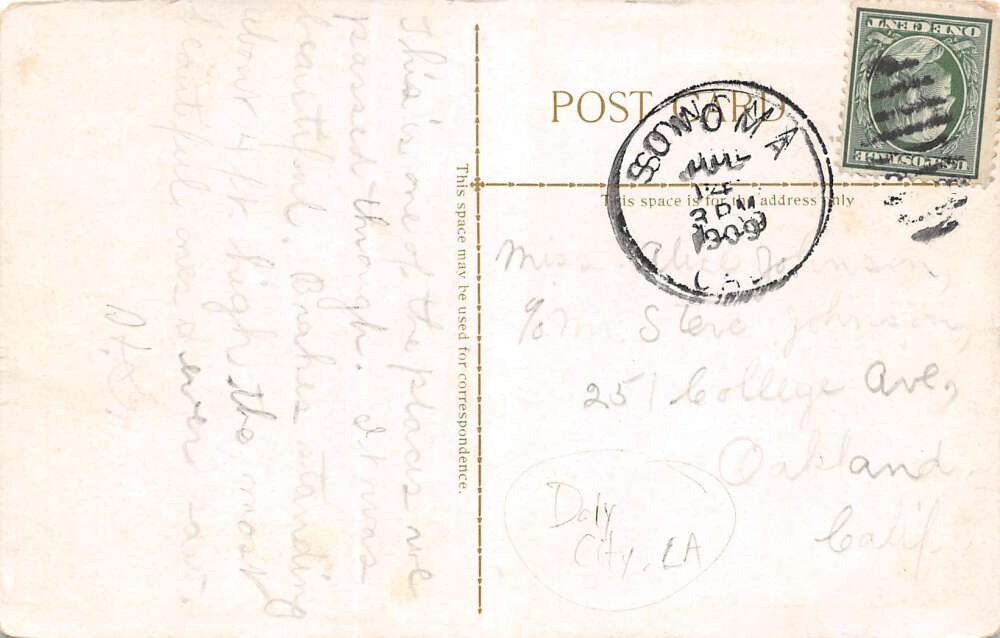 This is one of the places we
passed through. It was
beautiful. Brakes standing
about 4 ft. high the most
beautiful ones I ever saw.
This space may be used for correspondence.
POST CARD
This space is for the address only
SONOMA
3 PM
1909
CAL
ONE CENT
U.S. POSTAGE
Miss Alice Johnson,
c/o Mr. Steve Johnson,
251 College Ave,
Oakland
Calif.
Daly
City, CA